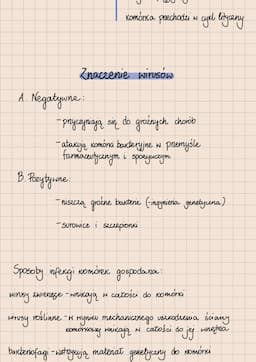 komórka przechodzi w cykl lityczny
Znaczenie wirusów
A. Negatywne:
- przyczyniają się do groźnych chorób
- atakują komórki bakteryjne w przemyśle
farmaceutycznym i spożywczym
B. Pozytywne:
- niszczą groźne bakterie (-inżynieria genetyczna)
- surowice i szczepionki
Sposoby infekcji komórek gospodarza:
wirusy zwierzęce - wnikają w całości do komórki
wirusy roślinne - w wyniku mechanicznego uszkodzenia ściany
komórkowej wnikają w całości do jej wnętrza
bakteriofagi - wstrzykują materiał genetyczny do komórki